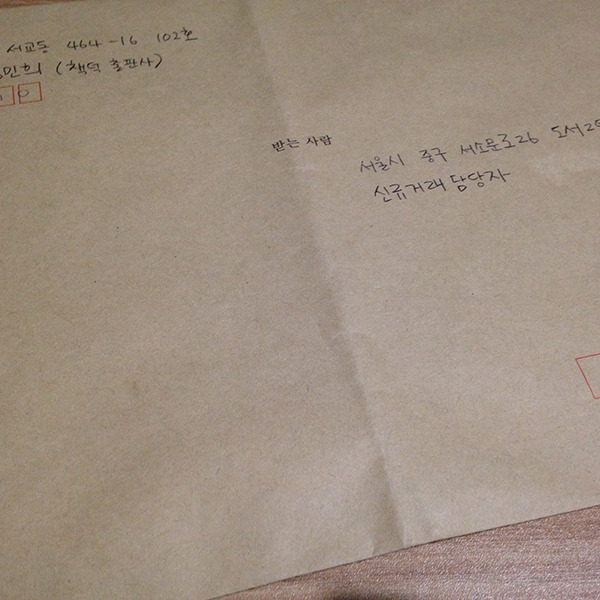 서교동 464-16 102호
민희 (책덕 출판사)
0
받는 사람
서울시 중구 서소문로26 도서2
신류거래 담당자